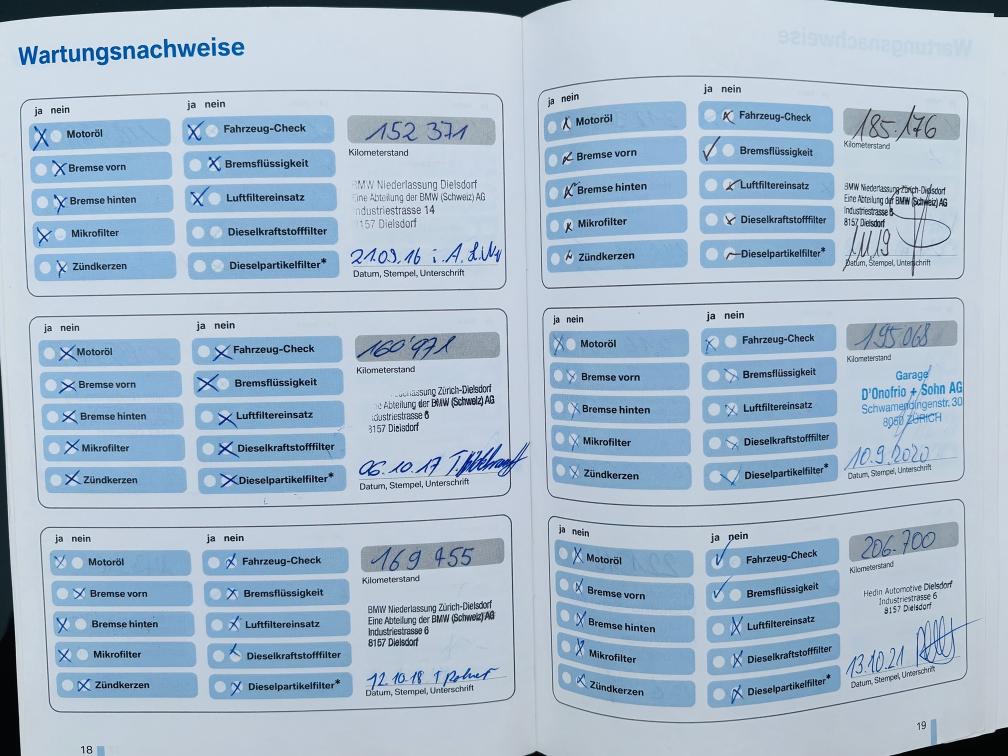 Wartungsnachweise
ja nein
ja nein
Motoröl
Bremse vorn
Bremse hinten
Mikrofilter
Zündkerzen
Fahrzeug-Check
Bremsflüssigkeit
Luftfiltereinsatz
Dieselkraftstofffilter
Dieselpartikelfilter*
152 371
Kilometerstand
BMW Niederlassung Dielsdorf
Eine Abteilung der BMW (Schweiz) AG
Industriestrasse 14
8157 Dielsdorf
21.03.16 i. A.
Datum, Stempel, Unterschrift
ja nein
ja nein
Motoröl
Bremse vorn
Bremse hinten
Mikrofilter
Zündkerzen
Fahrzeug-Check
Bremsflüssigkeit
Luftfiltereinsatz
Dieselkraftstofffilter
Dieselpartikelfilter*
160'971
Kilometerstand
Zürich-Dielsdorf
Abteilung der BMW (Schweiz) AG
dustriestrasse 6
3157 Dielsdorf
06.10.17
Datum, Stempel, Unterschrift
ja nein
ja nein
Motoröl
Bremse vorn
Bremse hinten
Mikrofilter
Zündkerzen
Fahrzeug-Check
Bremsflüssigkeit
Luftfiltereinsatz
Dieselkraftstofffilter
Dieselpartikelfilter*
169 455
Kilometerstand
BMW Niederlassung Zürich-Dielsdorf
Eine Abteilung der BMW (Schweiz) AG
Industriestrasse 6
8157 Dielsdorf
12.10.18
Datum, Stempel, Unterschrift
18
ja nein
ja nein
Motoröl
Bremse vorn
Bremse hinten
Mikrofilter
Zündkerzen
Fahrzeug-Check
Bremsflüssigkeit
Luftfiltereinsatz
Dieselkraftstofffilter
Dieselpartikelfilter*
185.176
Kilometerstand
BMW Niederlassung Zürich-Dielsdorf
Eine Abteilung der BMW (Schweiz) AG
Industriestrasse 6
8157 Dielsdorf
Datum, Stempel, Unterschrift
ja nein
ja nein
Motoröl
Bremse vorn
Bremse hinten
Mikrofilter
Zündkerzen
Fahrzeug-Check
Bremsflüssigkeit
Luftfiltereinsatz
Dieselkraftstofffilter
Dieselpartikelfilter*
195.068
Kilometerstand
Garage
D'Onofrio + Sohn AG
Schwamendingenstr. 30
8050 ZÜRICH
10.9.2020
Datum, Stempel, Unterschrift
ja nein
ja nein
Motoröl
Bremse vorn
Bremse hinten
Mikrofilter
Zündkerzen
Fahrzeug-Check
Bremsflüssigkeit
Luftfiltereinsatz
Dieselkraftstofffilter
Dieselpartikelfilter*
206.700
Kilometerstand
Hedin Automotive Dielsdorf
Industriestrasse 6
8157 Dielsdorf
13.10.21
Datum, Stempel, Unterschrift
19